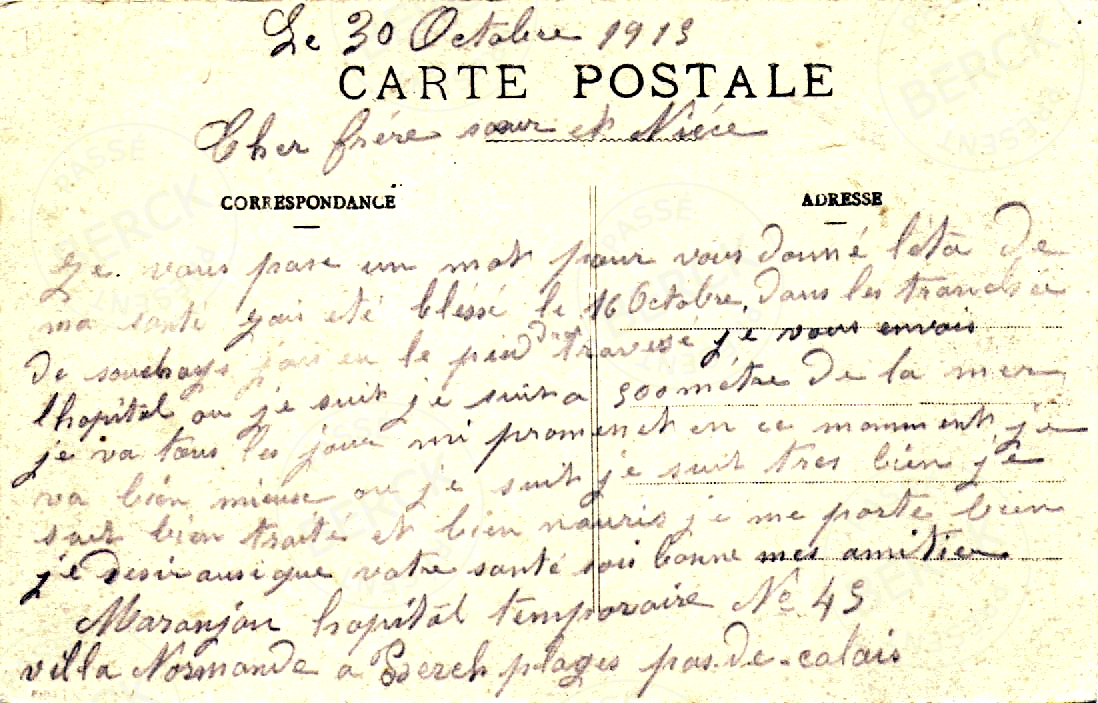 Le 30 Octobre 1915
CARTE POSTALE
Cher frére sœur et Niéce
CORRESPONDANCE
ADRESSE
Je vous pase un mot pour vous donné léta de
ma santé jais eté bléssé le 16 Octobre, dans les tranchée
de souchays jais eu le pied d traversé je vous envois
lhopital ou je suit je suit a 500 métre de la mer
je va tous les jour mi promener en ce momment je
va bien mieux ou je suit je suit tres bien je
suit bien traité et bien nouris je me porte bien
je desir ausi que votre santé soi bonne mes amitier
Maranjou hopital temporaire No 45
villa Normande a Berck plages pas-de-calais
PASSÉ
BERCK
PRÉSENT